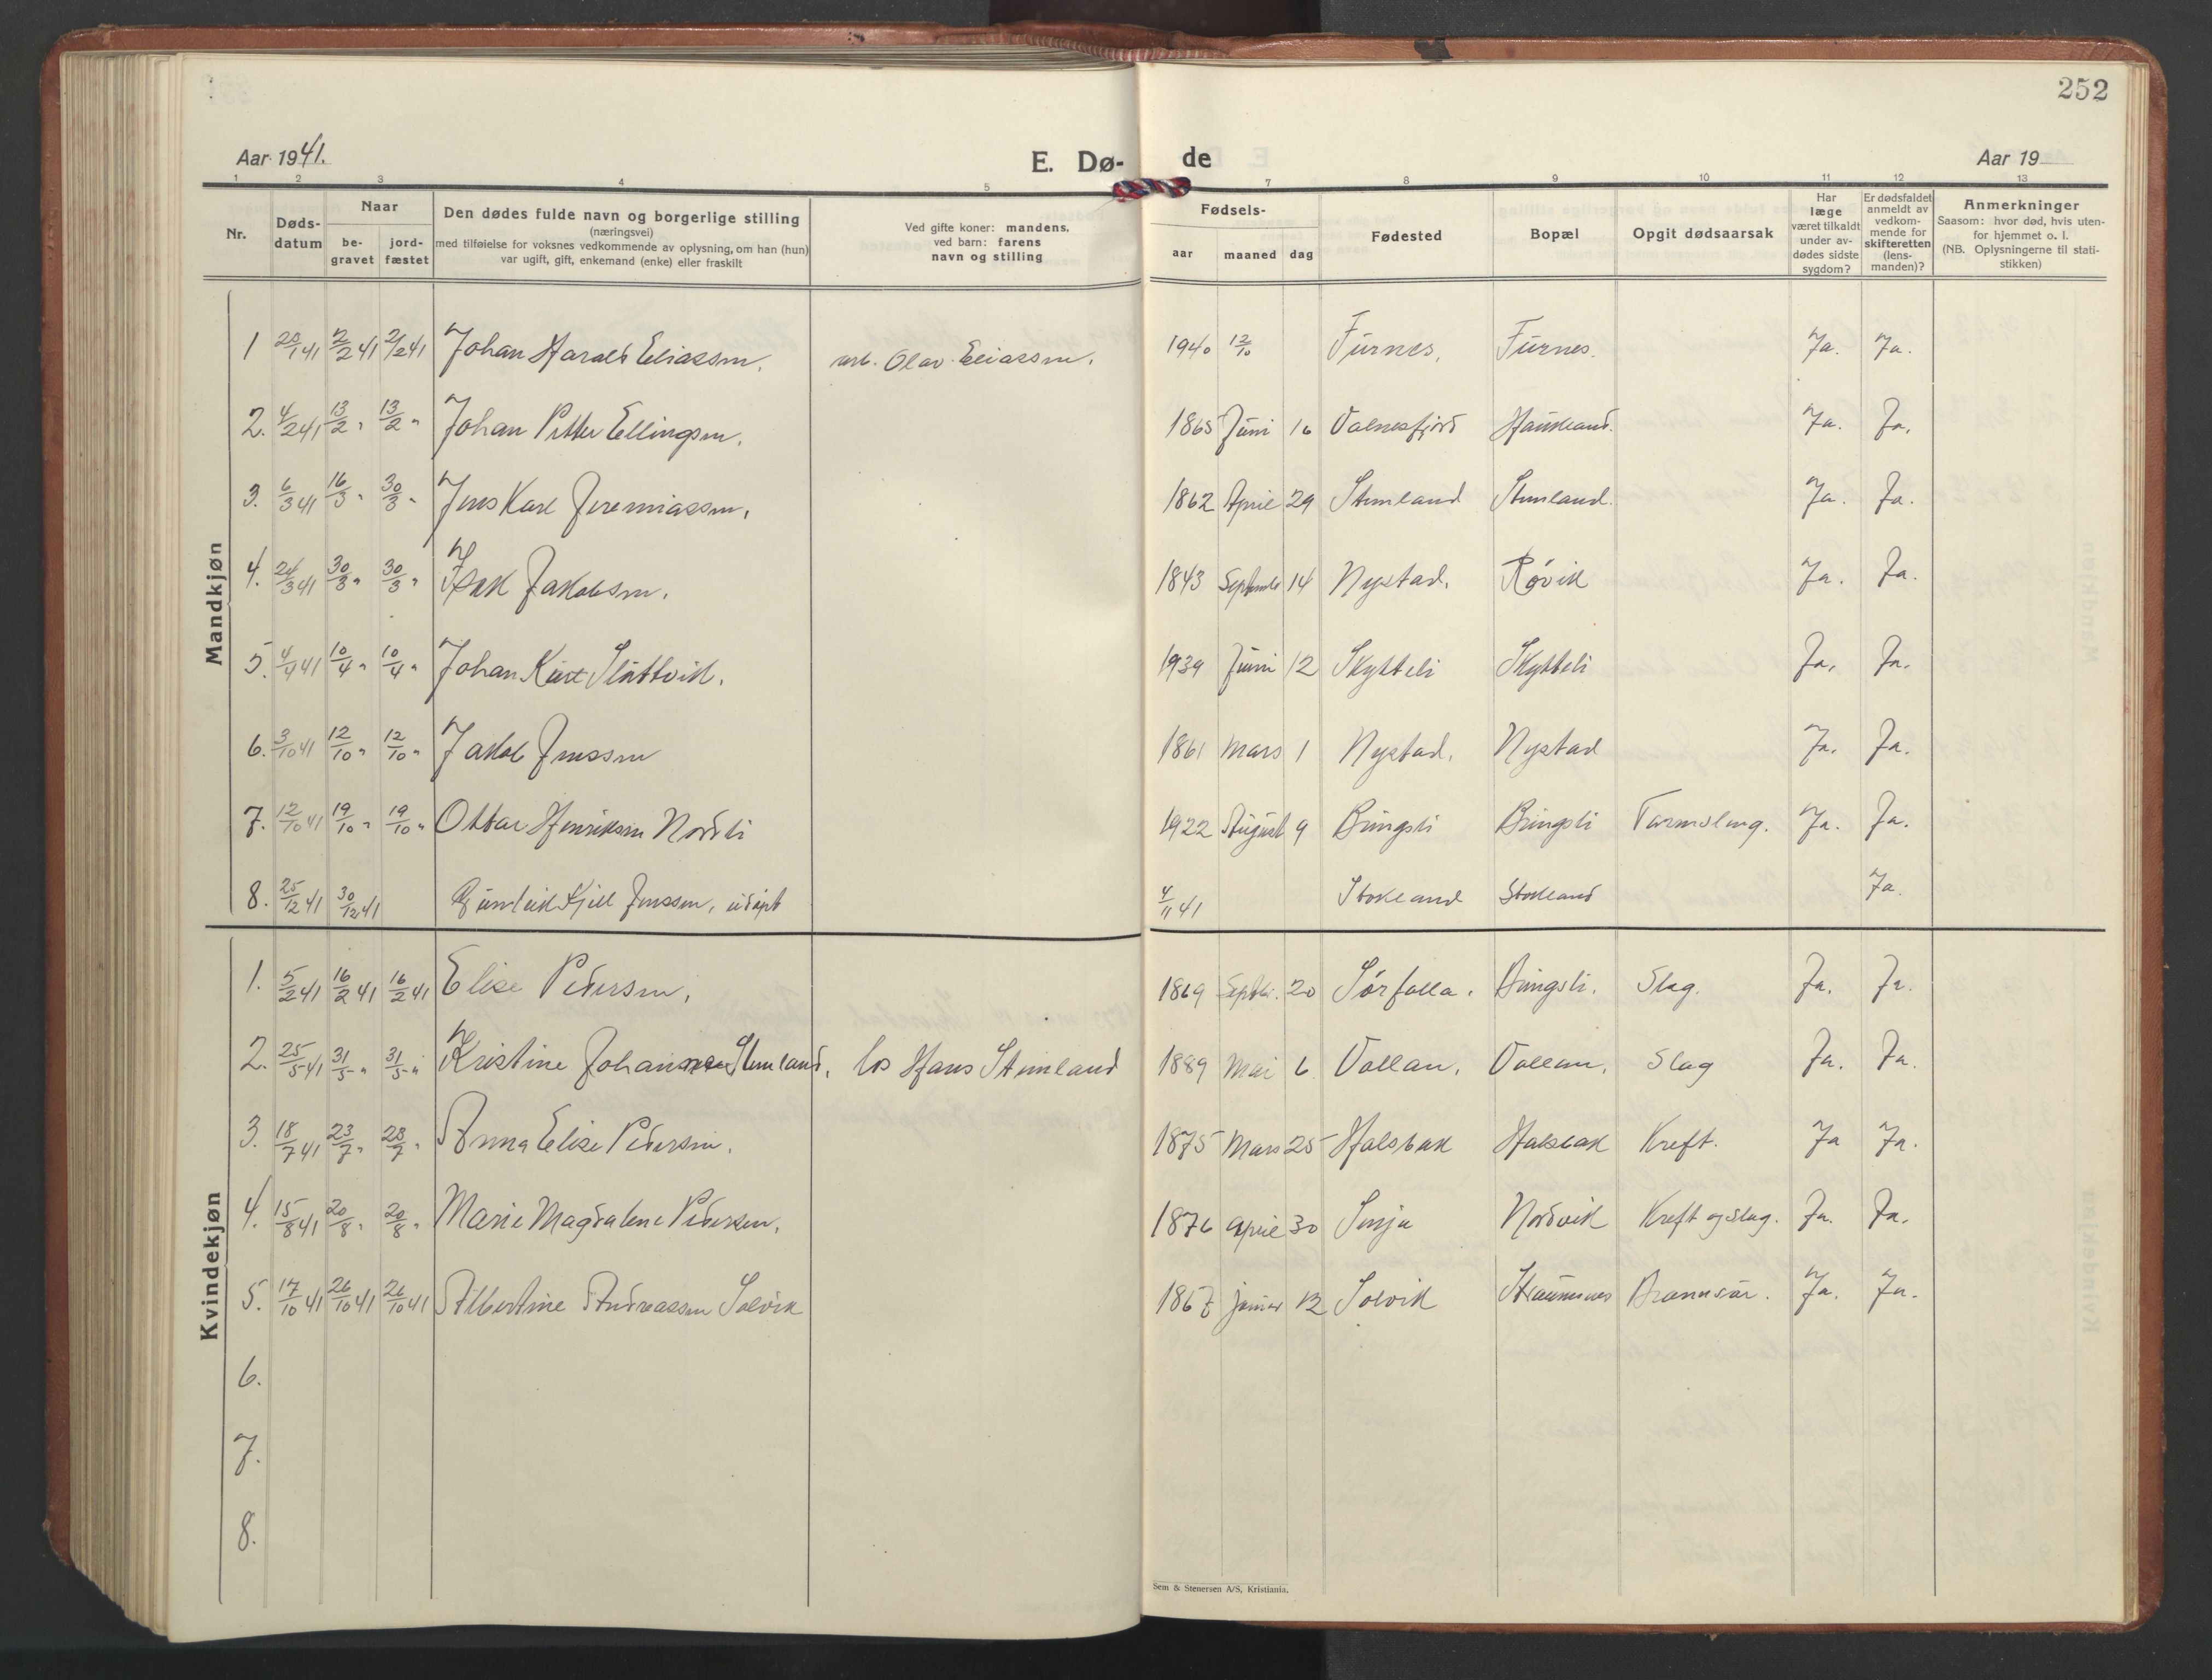 252
Aar 1941. E. Dø- de Aar 19
1 2 3 4 5 7 8 9 10 11 12 13
Nr. Dødsdatum Naar begravet jordfæstet Den dødes fulde navn og borgerlige stilling (næringsvei) med tilføielse for voksnes vedkommende av oplysning, om han (hun) var ugift, gift, enkemand (enke) eller fraskilt Ved gifte koner: mandens, ved barn: farens navn og stilling Fødsels- aar maaned dag Fødested Bopæl Opgit dødsaarsak Har læge været tilkaldt under avdødes sidste sygdom? Er dødsfaldet anmeldt av vedkommende for skifteretten (lensmanden)? Anmerkninger Saasom: hvor død, hvis utenfor hjemmet o. l. (NB. Oplysningerne til statistikken)
Mandkjøn
1 28/1 41 2/2 41 2/2 41 Johan Harald Eliassen. arb. Olav Eliassen. 1940 12/10 Furnes. Furnes. Ja. Ja.
2. 4/2 41 13/2 " 13/2 " Johan Petter Ellingsen. 1865 Juni 16 Valnesfjord Haukland. Ja. Ja.
3. 6/3 41 16/3 " 30/3 " Jens Karl Jeremiassen. 1862 April 29 Stemland Stemland. Ja. Ja.
4. 24/3 41 30/3 " 30/3 " Isak Jakobsen. 1843 September 14 Nystad. Røvik Ja. Ja.
5. 4/4 41 10/4 " 10/4 " Johan Kurt Slåttvik. 1939 Juni 12 Skytteli Skytteli Ja. Ja.
6. 3/10 41 12/10 " 12/10 " Jakob Jenssen 1861 Mars 1 Nystad. Nystad Ja. Ja.
7. 12/10 41 19/10 " 19/10 " Ottar Henriksen Nordli 1922 August 9 Bringsli Bringsli Tarmslyng. Ja. Ja.
8. 25/12 41 30/12 41 Gunleik Kjell Jenssen, udøpt 4/11 41 Stokland Stokland Ja.
Kvindekjøn
1. 5/2 41 16/2 41 16/2 41 Elise Pedersen. 1869 Septbr. 20 Sørfolla. Bringsli. Slag. Ja. Ja.
2. 25/5 41 31/5 " 31/5 " Kristine Johannea Stemland. Hans Stemland 1889 Mai 6 Vollan. Vollan. Slag Ja. Ja.
3. 18/7 41 23/7 " 28/7 " Anna Elise Pedersen. 1875 Mars 25 Halsbak Halsbak Kreft. Ja Ja.
4. 15/8 41 20/8 " 20/8 " Marie Magdalene Pedersen. 1876 April 30 Senja Nordvik Kreft og slag. Ja. Ja.
5. 17/10 41 26/10 41 26/10 41 Albertine Andreassen Solvik 1867 januar 12 Solvik Straumnes Brannsår. Ja. Ja.
6.
7.
8.
Sem & Stenersen A/S, Kristiania.